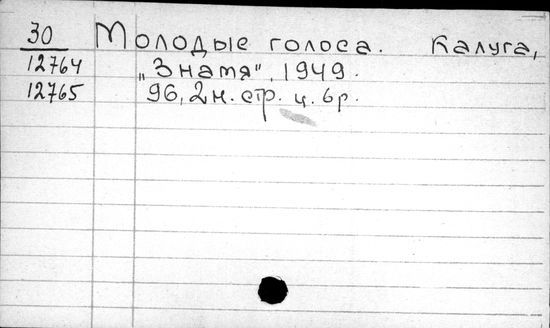 30 Молодые голоса. Калуга,
12764 „Знамя", 1949.
12765 96, 2н. стр. ц. 6р.